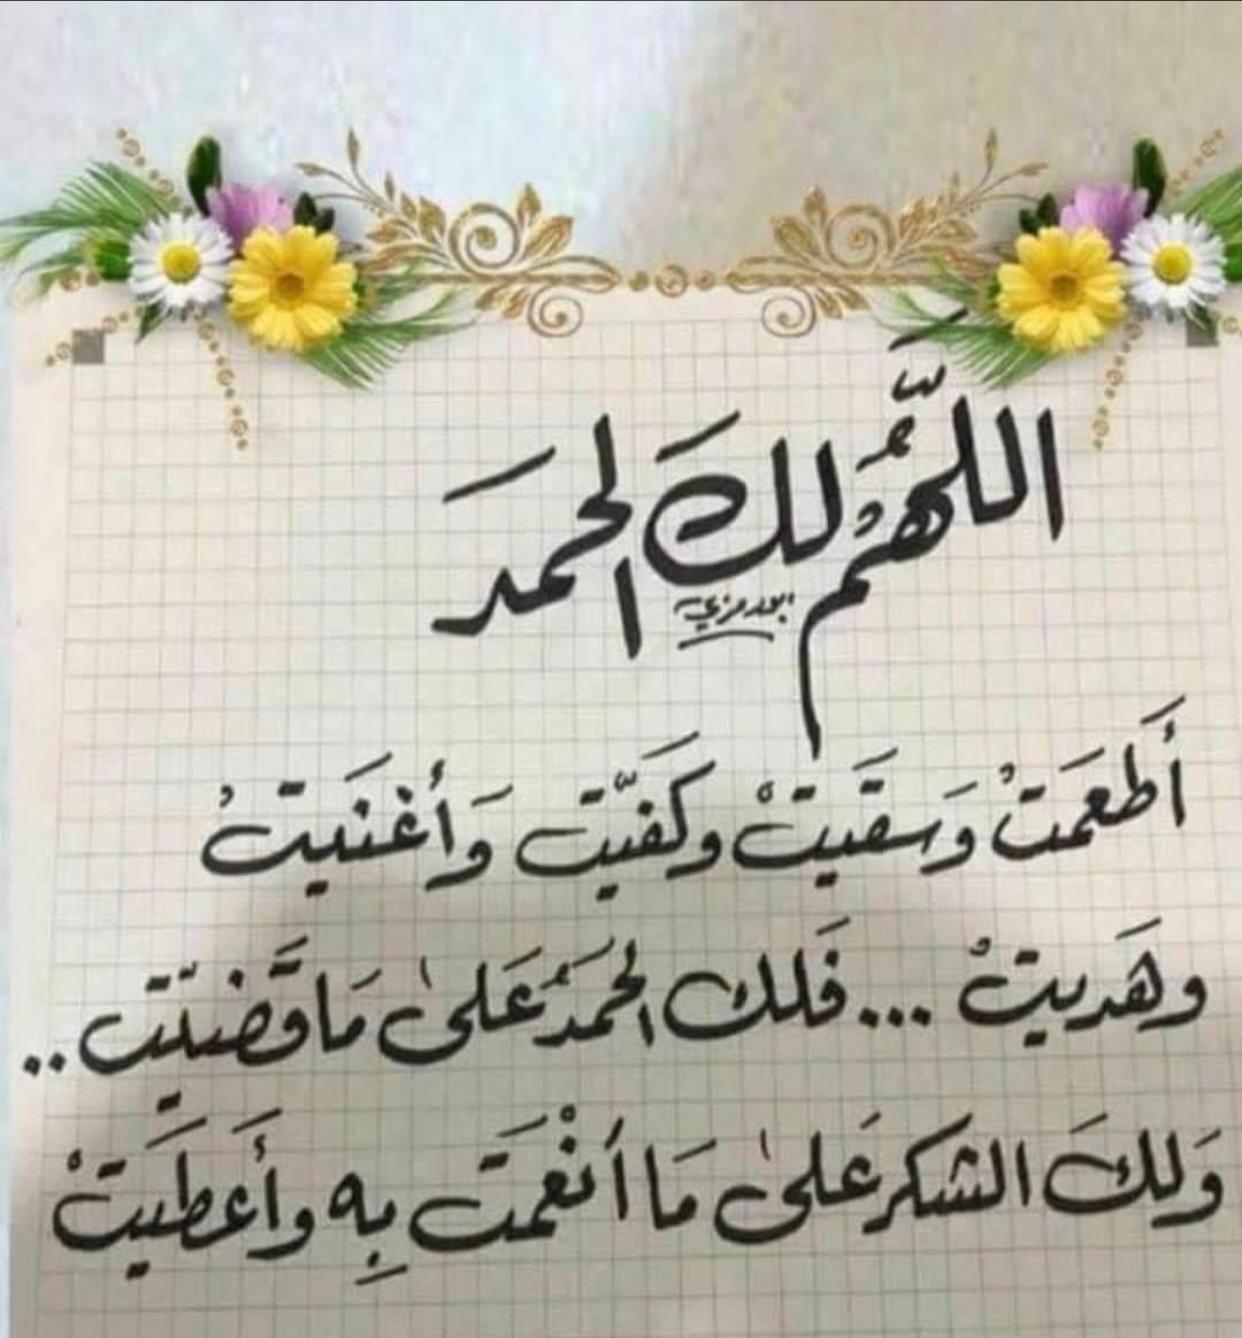 اللّهُمَّ لكَ الحمدَ
أَطعَمتْ وَسقَيتْ وكَفيّت وَأغْنَيتْ
وهَديتْ ... فَلك الحَمدُ عَلىٰ مَا قَضيّت ..
وَلكَ الشكر عَلىٰ مَا أنْعَمتَ بِه وأَعطَيتْ